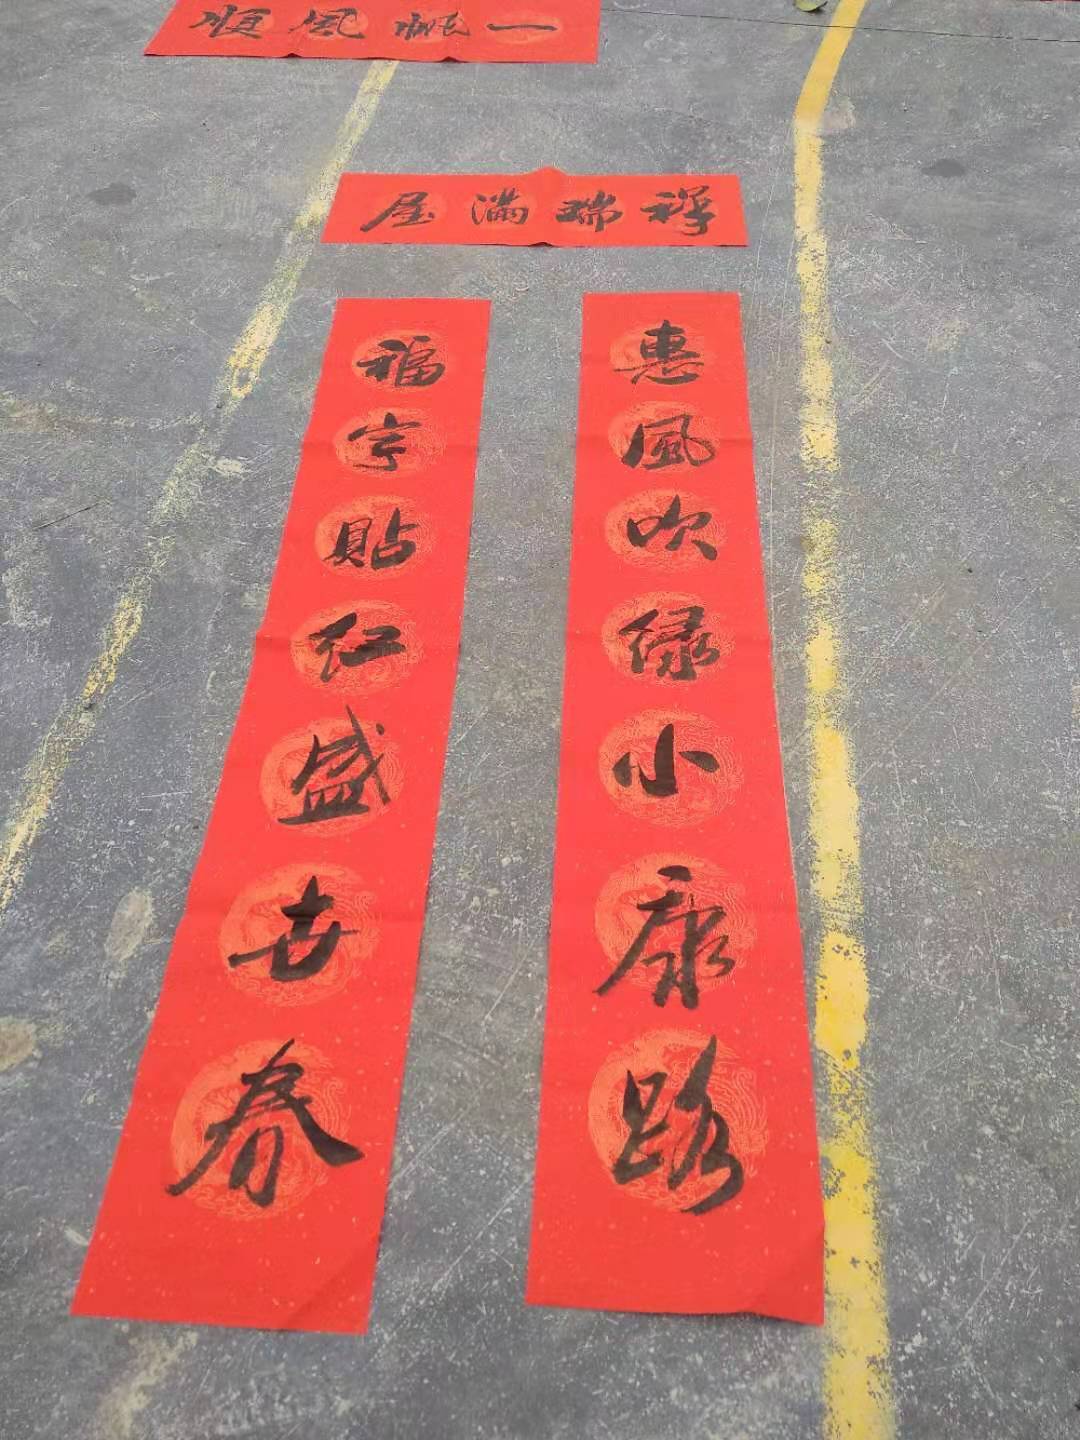 一帆風順
祥瑞满屋
惠風吹绿小康路
福字貼红盛世春